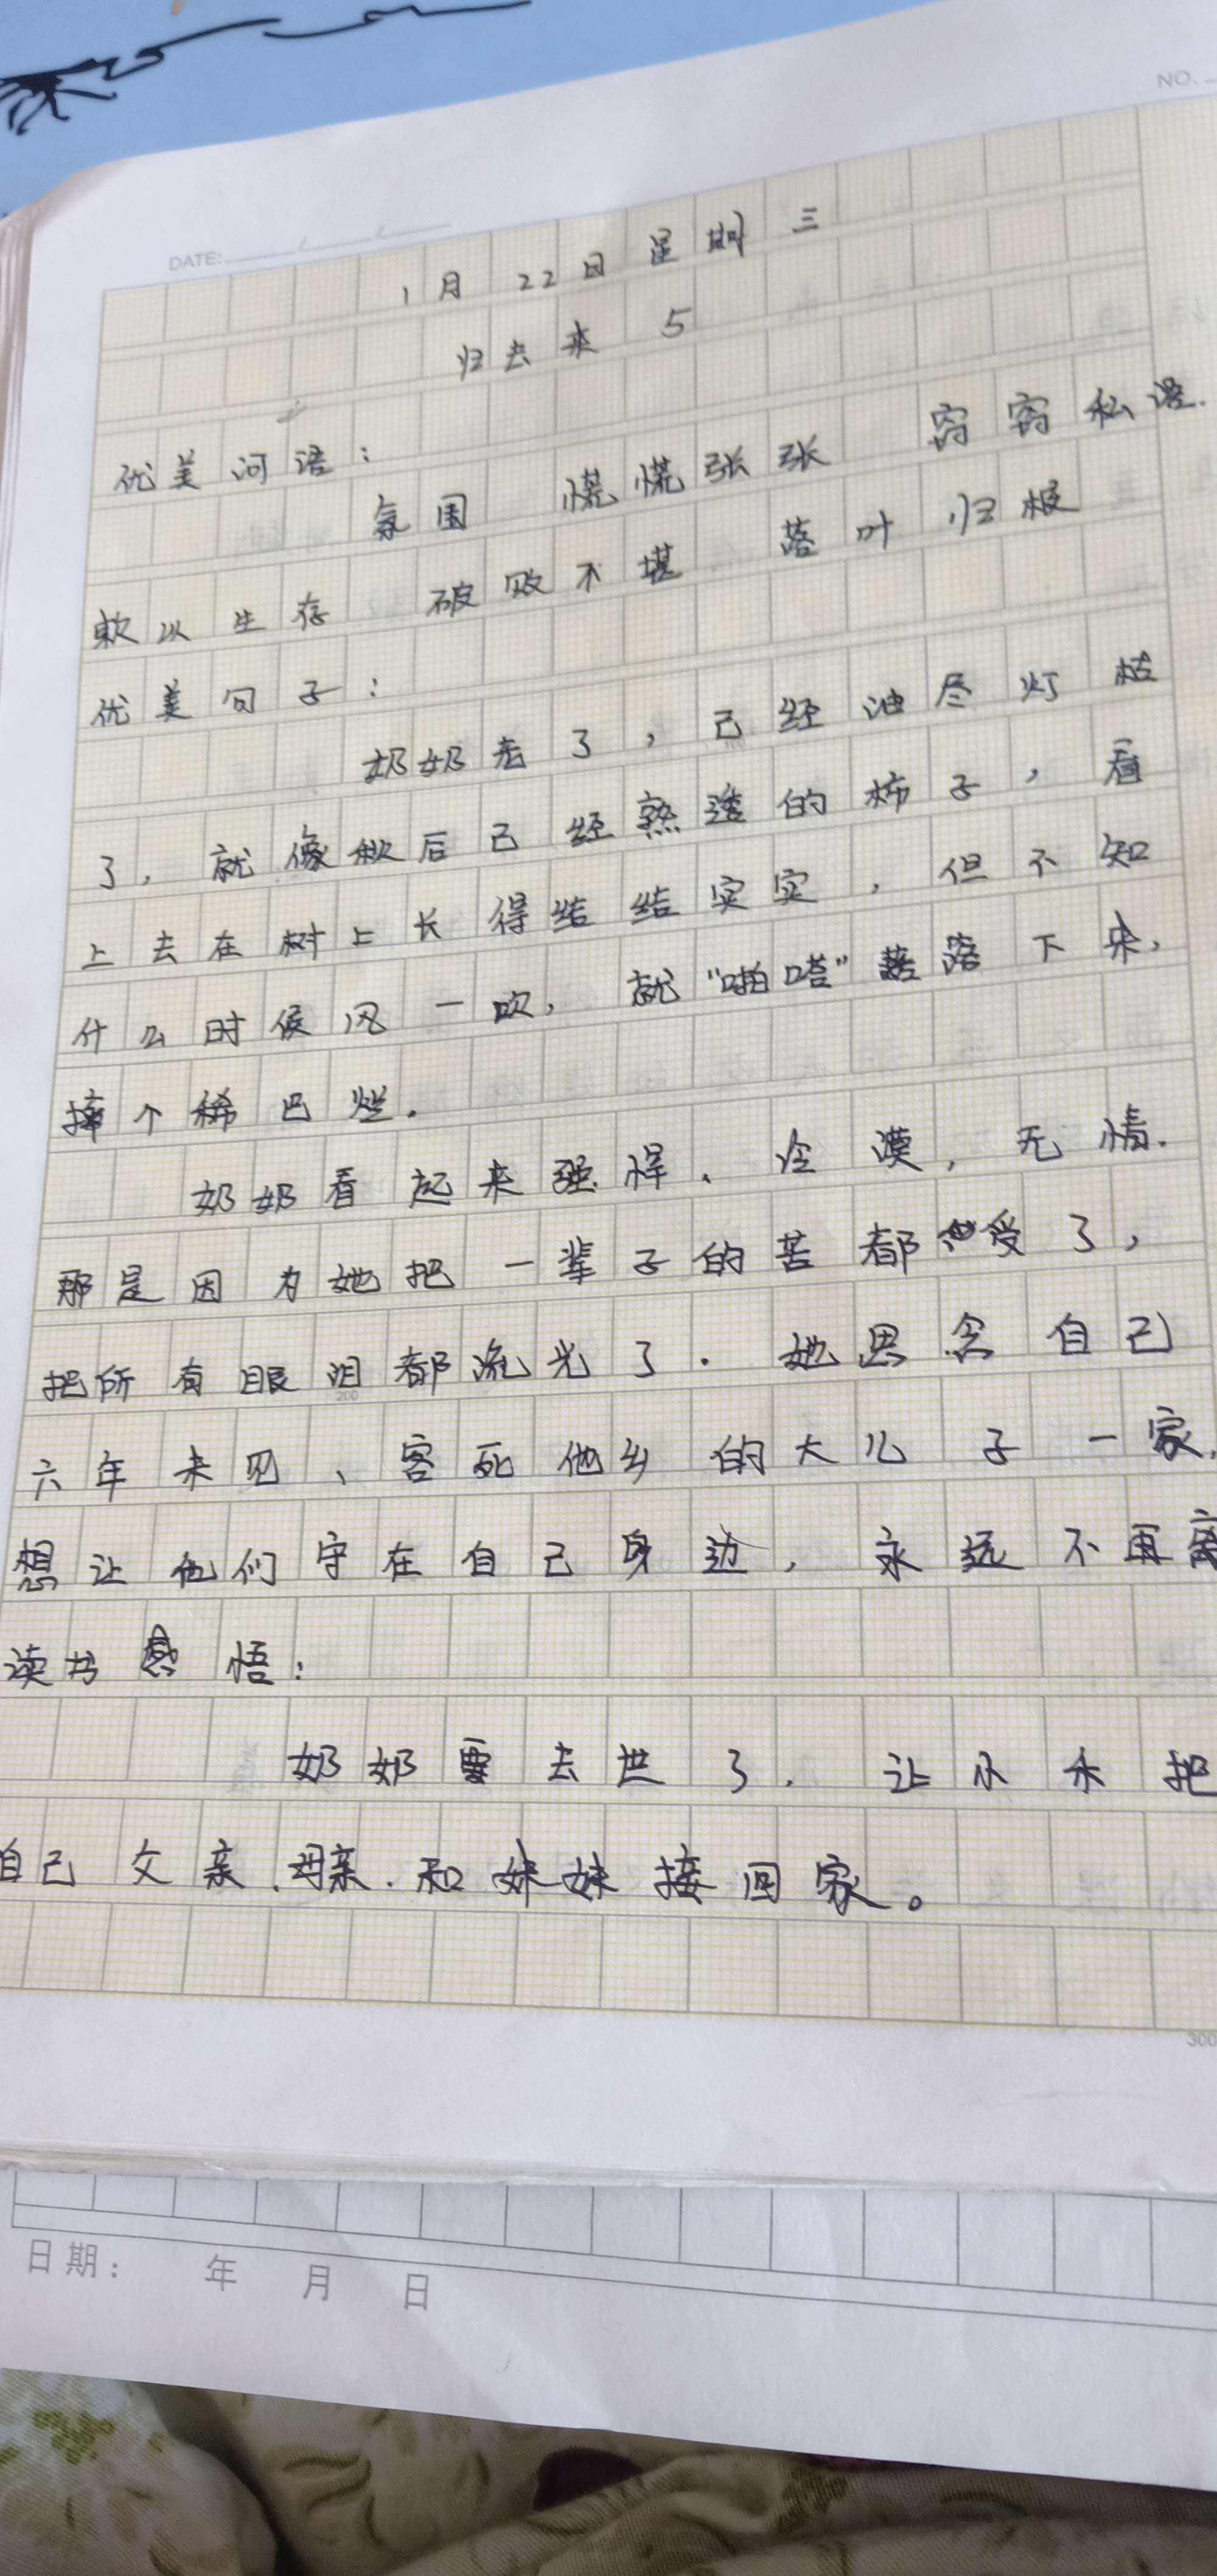 NO.
DATE:
1月22日星期三
归去来 5
优美词语:
氛围 慌慌张张 窃窃私语.
软以生存 破败不堪 落叶归根
优美句子:
奶奶老了,已经油尽灯枯
了,就像秋后已经熟透的柿子,看
上去在树上长得结结实实,但不知
什么时候风一吹,就“啪嗒”落下来,
摔个稀巴烂.
奶奶看起来强悍、冷漠,无情.
那是因为她把一辈子的苦都受了,
把所有眼泪都流光了.她思念自己
200
六年未见、客死他乡的大儿子一家,
想让他们守在自己身边,永远不再离
读书感悟:
奶奶要去世了.让小禾把
自己父亲.母亲.和妹妹接回家。
300
日期: 年 月 日